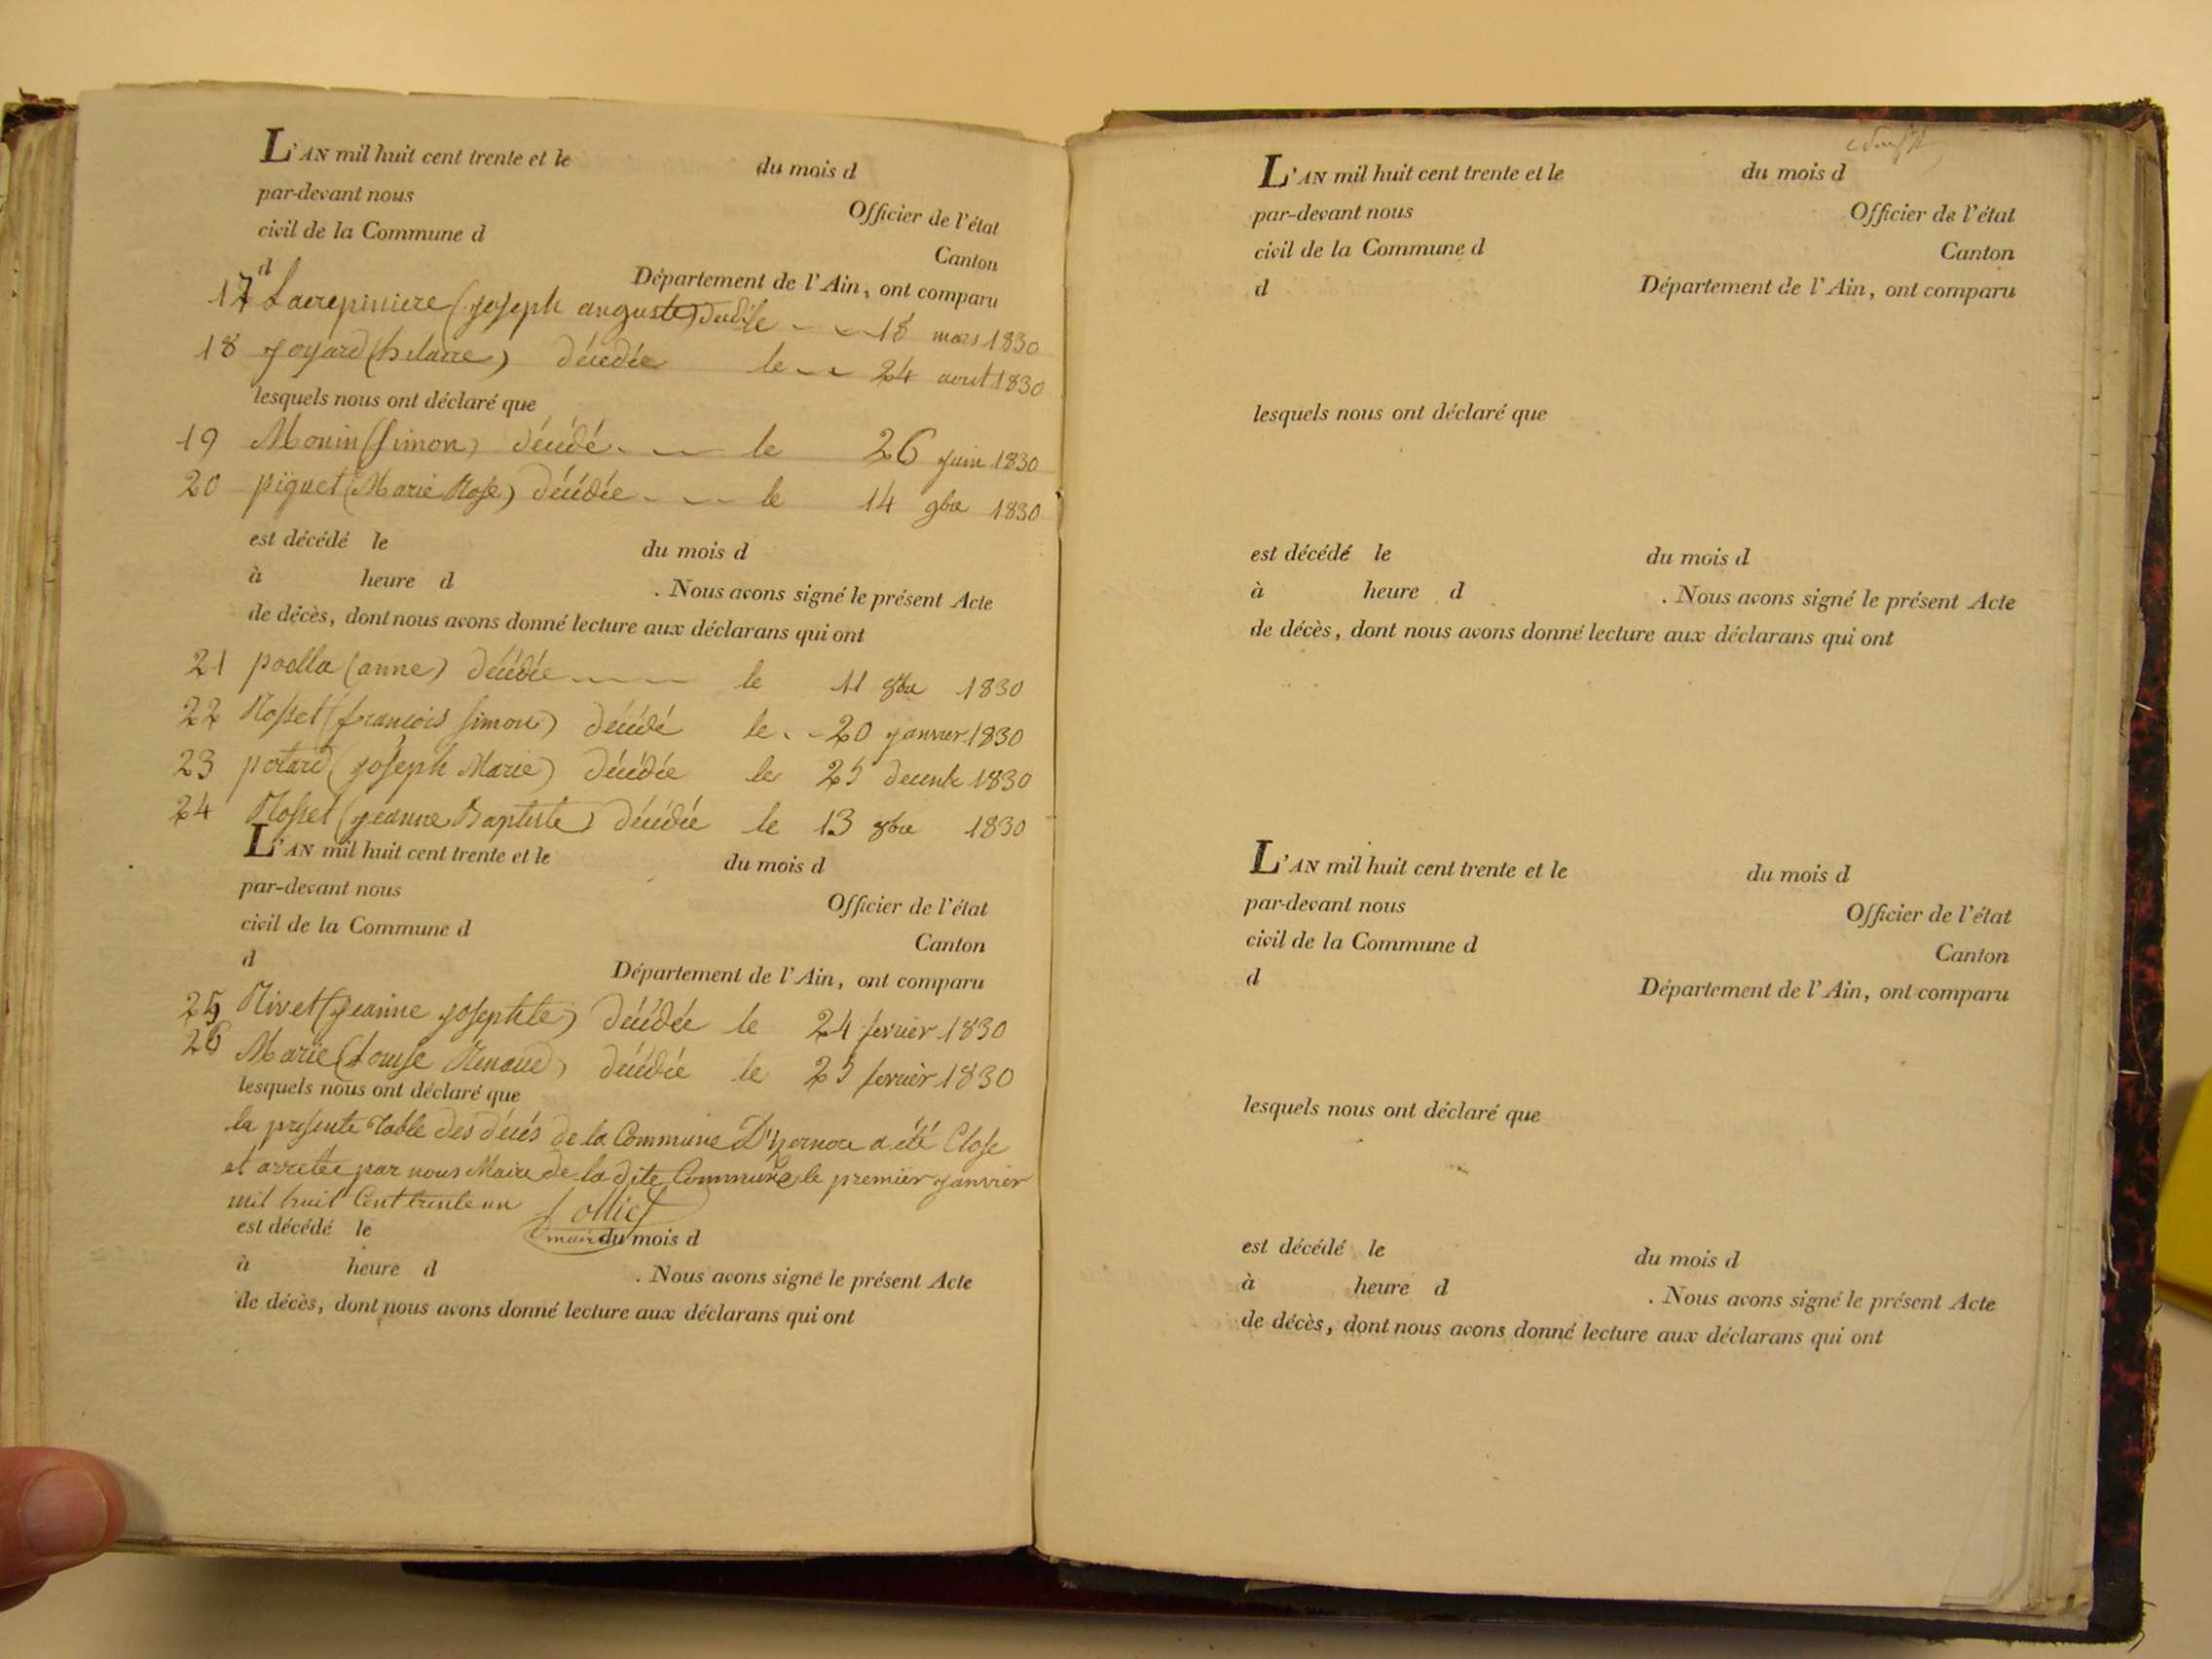 L'AN mil huit cent trente et le du mois d
par-devant nous Officier de l'état
civil de la Commune d Canton
d Département de l'Ain, ont comparu
17 Lacrepiniere (joseph auguste) 18 mars 1830
18 joyard (hilaire) décédée le 24 aout 1830
lesquels nous ont déclaré que
19 Monin (simon) décédé le 26 juin 1830
20 piquet (Marie Rose) décédée le 14 9bre 1830
est décédé le du mois d
à heure d . Nous avons signé le présent Acte
de décès, dont nous avons donné lecture aux déclarans qui ont
21 poella (anne) décédée le 11 8bre 1830
22 Rosset (françois simon) décédé le 20 janvier 1830
23 potard (joseph Marie) décédée le 25 decemb 1830
24 Rosset (jeanne Baptiste) décédée le 13 8bre 1830
L'AN mil huit cent trente et le du mois d
par-devant nous Officier de l'état
civil de la Commune d Canton
d Département de l'Ain, ont comparu
25 Nivet (jeanne josephte) décédée le 24 fevrier 1830
26 Marie (Louise Renaud) décédée le 25 fevrier 1830
lesquels nous ont déclaré que
la presente Table des décés de la Commune D'yzernore a été Close
et arretée par nous Maire de la dite Commune le premier janvier
mil huit Cent trente un
maire
est décédé le du mois d
à heure d . Nous avons signé le présent Acte
de décès, dont nous avons donné lecture aux déclarans qui ont
L'AN mil huit cent trente et le du mois d
par-devant nous Officier de l'état
civil de la Commune d Canton
d Département de l'Ain, ont comparu
lesquels nous ont déclaré que
est décédé le du mois d
à heure d . Nous avons signé le présent Acte
de décès, dont nous avons donné lecture aux déclarans qui ont
L'AN mil huit cent trente et le du mois d
par-devant nous Officier de l'état
civil de la Commune d Canton
d Département de l'Ain, ont comparu
lesquels nous ont déclaré que
est décédé le du mois d
à heure d . Nous avons signé le présent Acte
de décès, dont nous avons donné lecture aux déclarans qui ont